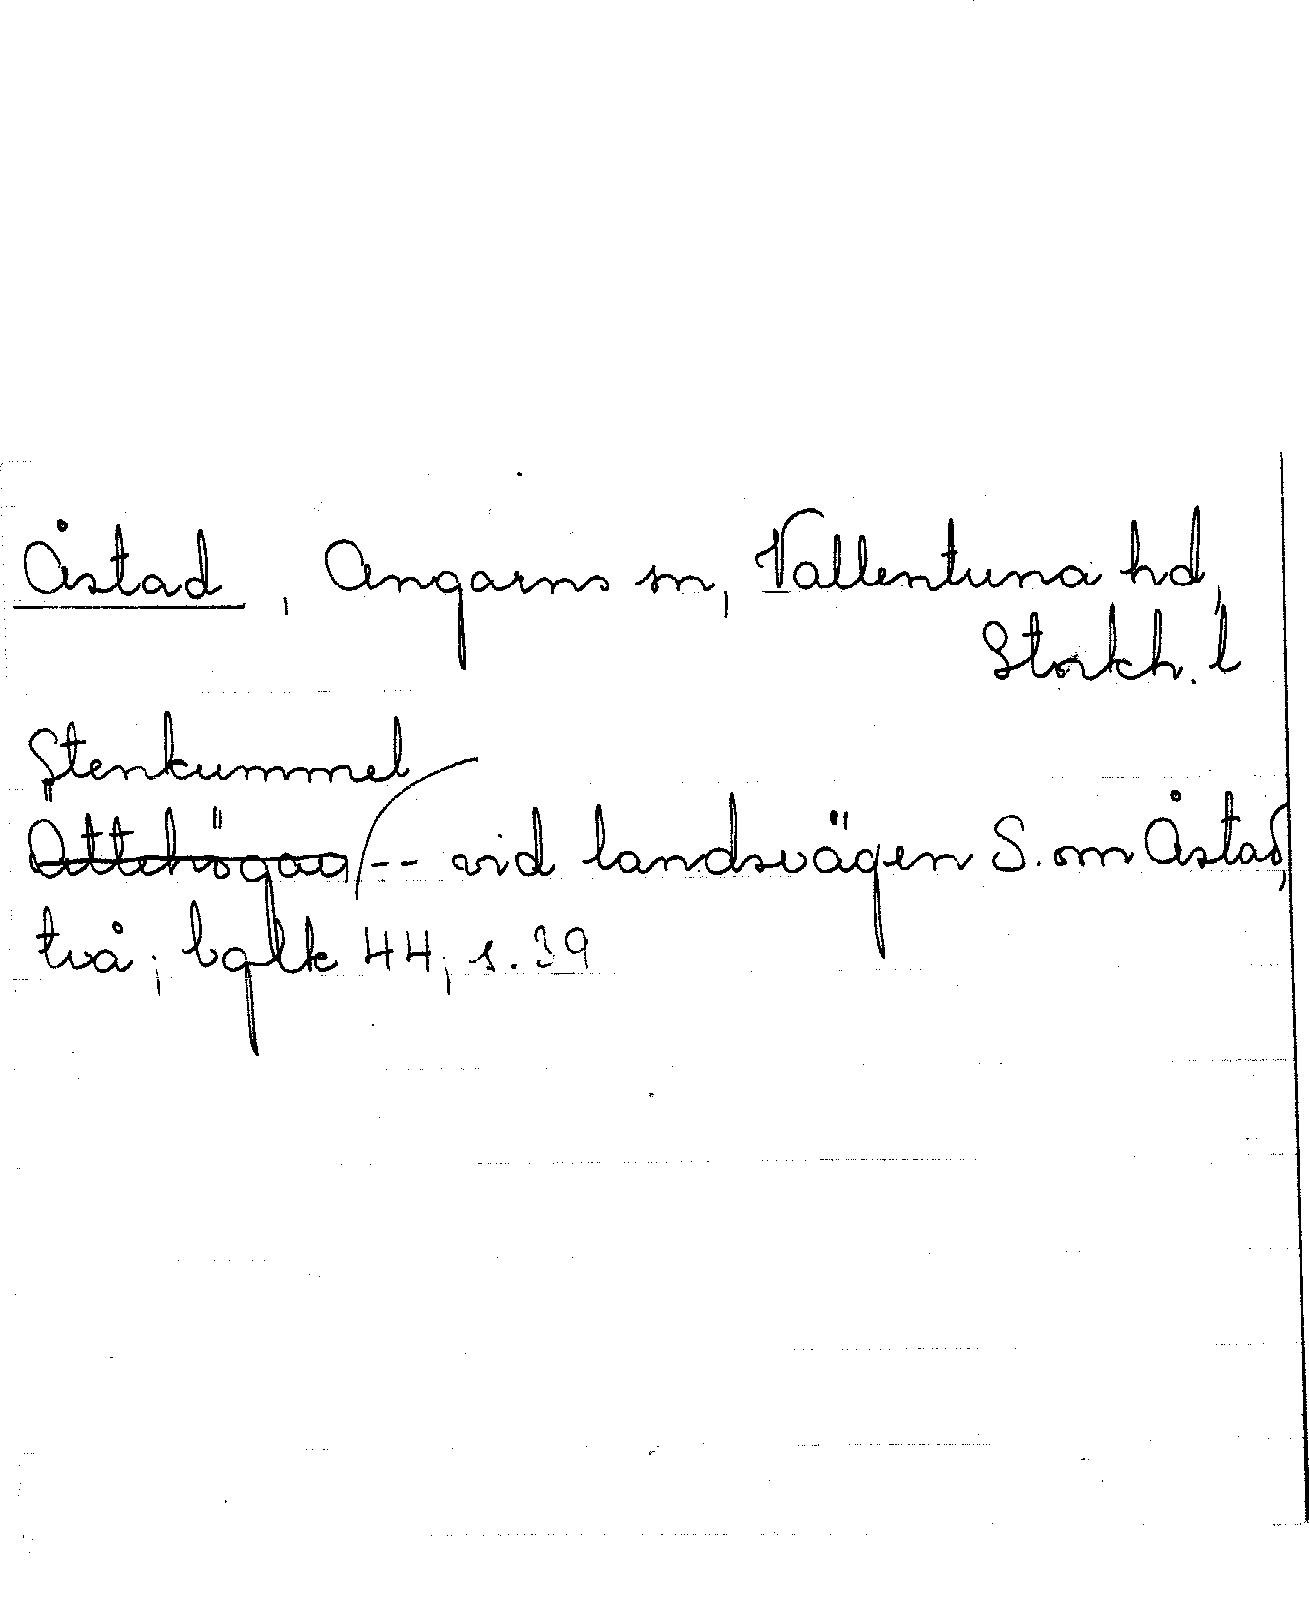 Åstad, Angarns sn, Vallentuna hd,
Stockh. l
Stenkummel
Ättehögar -- vid landsvägen S. om Åstad,
två; bglk 44, s. 39